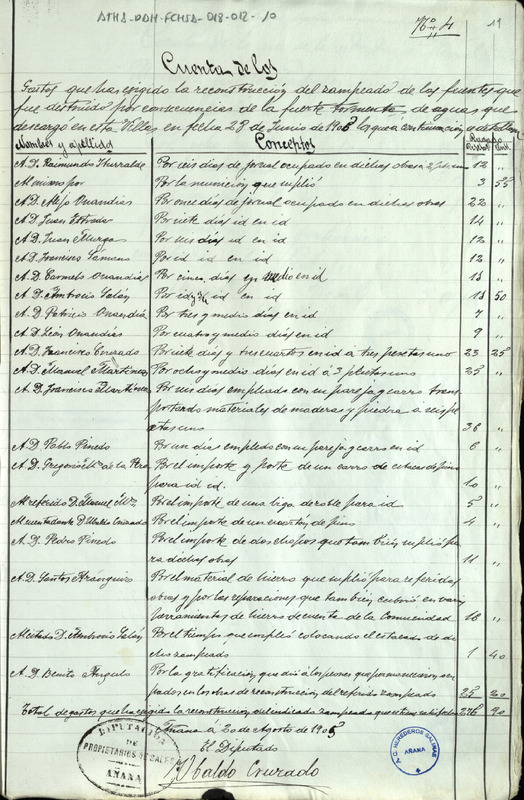 ATHA-DDH-FCHSA-018-012-10
Nº 4
11
Cuenta de los
Gastos que ha exigido la reconstrucción del zampeado de las fuentes que
fue destruido por consecuencias de la fuerte tormenta de aguas que
descargó en esta Villa en fecha 28 de Junio de 1905 la que a continuación se detallan
Nombres y apellidos Conceptos Pesetas Cent.
A D. Raimundo Iturralde Por seis días de jornal ocupado en dichas obras a 2 ptas uno 12 "
Al mismo por Por la munición que suplió 3 55
A D. Alejo Ouandías Por once días de jornal ocupado en dichas obras 22 "
A D. Juan Estrada Por siete días id en id 14 "
A D. Juan Murga Por seis días id en id 12 "
A D. Francisco Samano Por id id en id 12 "
A D. Carmelo Ouandías Por cinco días y medio en id 11 "
A D. Ambrosio Salay Por id y 3/4 id en id 11 50
A D. Patricio Ouandía Por tres y medio días en id 7 "
A D. León Ouandías Por cuatro y medio días en id 9 "
A D. Francisco Cruzado Por siete días y tres cuartos en id a tres pesetas uno 23 25
A D. Manuel Martínez Por ocho y medio días en id a 3 pesetas uno 25 "
A D. Francisco Martínez Por seis días empleado con su pareja y carro trans-
portando materiales de maderas y piedra a seis pe-
setas uno 36 "
A D. Pablo Pinedo Por un días empleado con su pareja y carro en id 6 "
A D. Gregorio M. de la Pera Por el importe y porte de un carro de estacas de pino
para id id. 10 "
Al referido D. Manuel Mz Por el importe de una viga de roble para id 5 "
Al mentadante D. Matio Ouandía Por el importe de un cuartón de pino 4 "
A D. Pedro Pinedo Por el importe de dos chopos que también suplió pa-
ra dichas obras 11 "
A D. Santos Aránguiz Por el material de hierro que suplió para referidas
obras y por las reparaciones que también cubrió en varias
herramientas de hierro de cuenta de la Comunidad 16 "
Al citado D. Ambrosio Salay Por el tiempo que empleó colocando el estacado de di-
cho zampeado 1 40
A D. Benito Angulo Por la gratificación que dió a los peones que permanecieron ocu-
pados en las obras de reconstrucción del referido zampeado 25 20
Total de gastos que ha exigido la reconstrucción del indicado zampeado que etc. 276 90
Añana á 20 de Agosto de 1905
El Diputado
Ubaldo Cruzado
DIPUTACION
DE
PROPIETARIOS DE SALINAS
AÑANA
C. HEREDEROS SALINAS
AÑANA